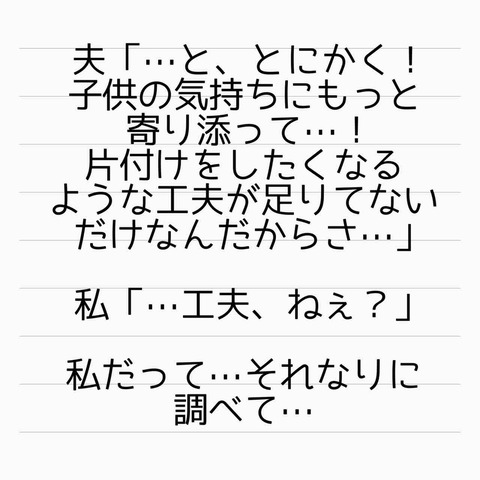 夫「…と、とにかく！
子供の気持ちにもっと
寄り添って…！
片付けをしたくなる
ような工夫が足りてない
だけなんだからさ…」
私「…工夫、ねぇ？」
私だって…それなりに
調べて…